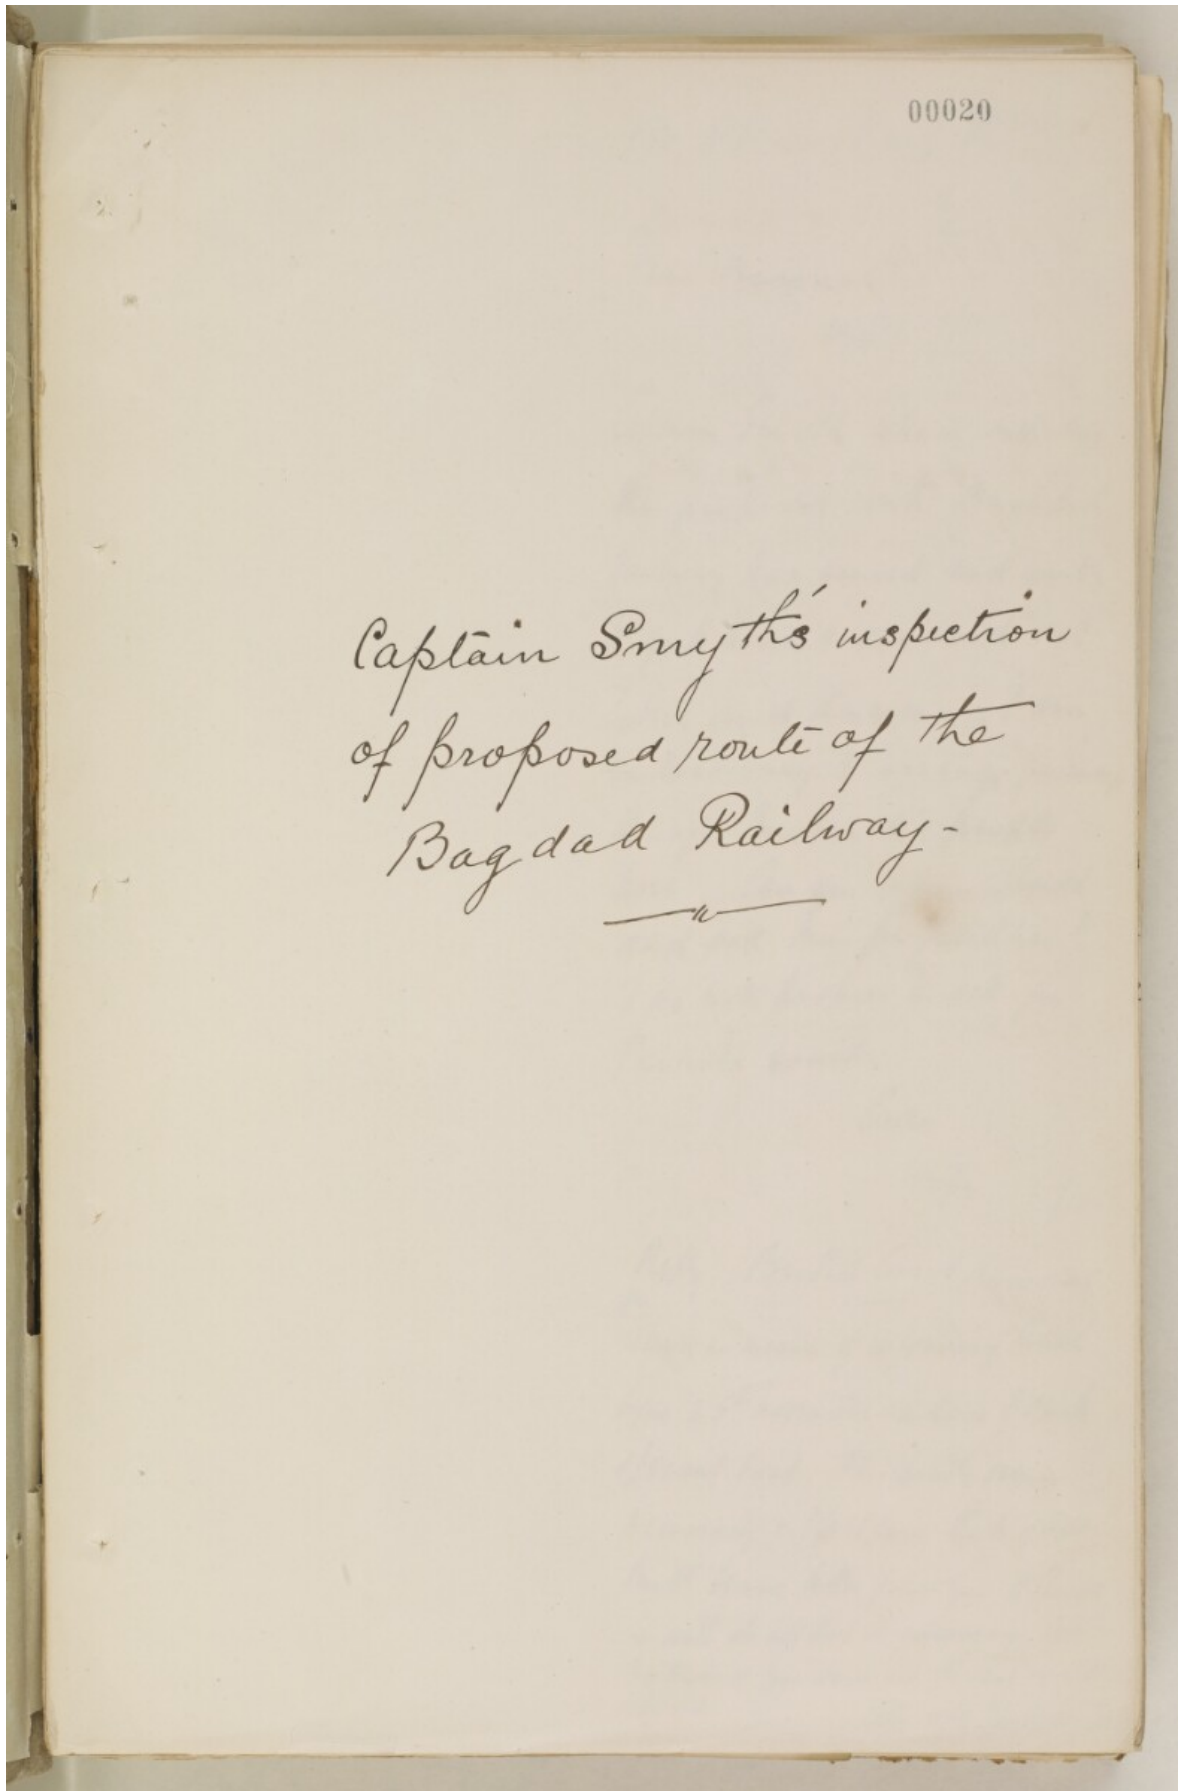 00020
Captain Smyth's inspection
of proposed route of the
Bagdad Railway-